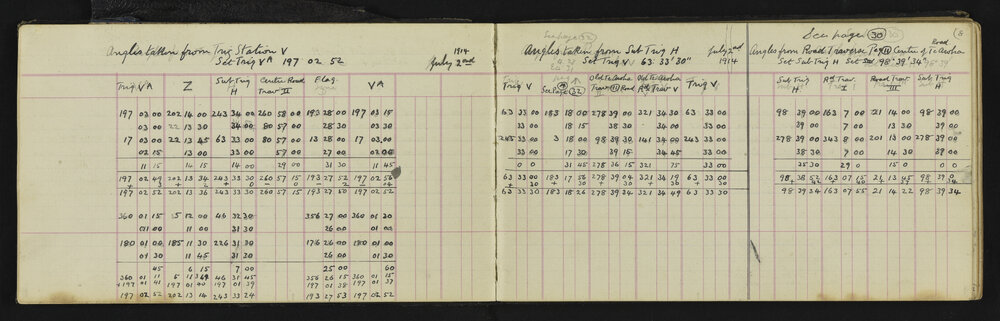 Angles taken from Trig Station V
Set Trig VA 197 02 52
1914
July 2nd
Trig VA Z Sub Trig H Centre Road Trav II Flag VA
197 03 00 202 14 00 243 34 00 260 58 00 193 28 00 197 03 15
03 00 22 13 30 34 00 80 57 00 28 30 03 30
17 03 00 22 13 45 63 33 00 80 57 00 13 28 00 17 03 00
02 15 13 00 33 00 57 00 27 00 02 00
11 15 14 15 14 00 29 00 31 30 11 45
197 02 49 202 13 34 243 33 30 260 57 15 193 27 52 197 02 56
197 02 52 202 13 36 243 33 30 260 57 15 193 27 50 197 02 52
360 01 15 5 12 00 46 32 30 356 27 00 360 01 30
01 00 11 00 31 30 26 00 01 00
180 01 00 185 11 30 226 31 30 176 26 00 180 01 00
01 30 11 45 31 30 26 00 01 30
45 6 15 7 00 25 00 60
360 01 11 46 31 45 356 26 15 360 01 15
+197 01 41 197 01 40 197 01 39 197 01 38 197 01 37
197 02 52 202 13 14 243 33 24 193 27 53 197 02 52
See page 32
Angles taken from Sub Trig H
Set Trig V 63° 33' 30"
July 2nd
1914
Trig V See Page 32 Old Te Aroha Trav 11 Road Old Te Aroha Rd Trav V Trig V
63 33 00 183 18 00 278 39 00 321 34 30 63 33 00
33 00 18 15 38 30 34 00 33 00
243 33 00 3 18 00 98 39 30 141 34 00 243 33 00
33 00 17 30 39 15 34 45 33 00
0 0 31 45 278 36 15 321 75 33 00
63 33 00 183 17 56 278 39 04 321 34 19 63 33 00
+ 30 + 30 30 + 30 + 30
63 33 30 183 18 26 278 39 34 321 34 49 63 33 30
See page 30
8
Angles from Road Traverse Peg 11 Centre of Te Aroha Road
Set Sub Trig H Set 98° 39' 34"
Sub Trig H Rd Trav. I Road Trav. III Sub Trig H
98 39 00 163 7 00 21 14 00 98 39 00
39 00 7 00 13 30 39 00
278 39 00 343 8 00 201 13 00 278 39 00
38 30 7 00 14 30 39 00
35 30 29 0 15 0 0 0
98 38 52 163 07 15 21 13 45 98 39 0
98 39 34 163 07 55 21 14 22 98 39 34